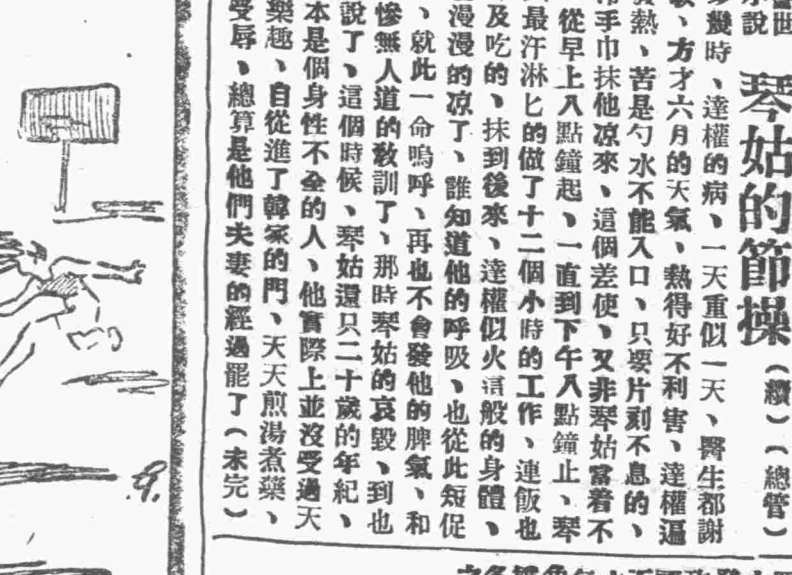 小說
琴姑的節操
（續）（總管）
幾時、達權的病、一天重似一天、醫生都謝
、方才六月的天氣、熱得好不利害、達權逼
熱、苦是勺水不能入口、只要片刻不息的、
手巾抹他凉來、這個差使、又非琴姑當着不
從早上八點鐘起、一直到下午八點鐘止、琴
最汗淋匕的做了十二個小時的工作、連飯也
及吃的、抹到後來、達權似火這般的身體、
漫漫的凉了、誰知道他的呼吸、也從此短促
、就此一命嗚呼、再也不會發他的脾氣、和
慘無人道的敎訓了、那時琴姑的哀毀、到也
說了、這個時候、琴姑還只二十歲的年紀、
本是個身性不全的人、他實際上並沒受過天
樂趣、自從進了韓家的門、天天煎湯煮藥、
受辱、總算是他們夫妻的經過罷了（未完）